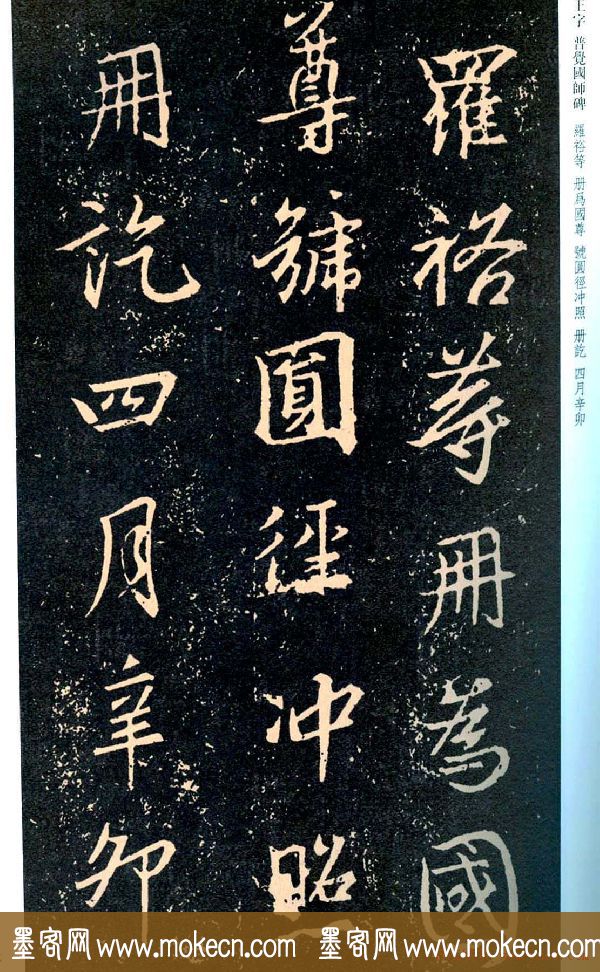 王字 普覺國師碑 羅裕等 册爲國尊 號圓徑冲照 册訖 四月辛卯
羅裕等冊為國
尊號圓徑冲照
冊訖四月辛卯
墨客网 www.mokecn.com 墨客网 www.mokecn.com